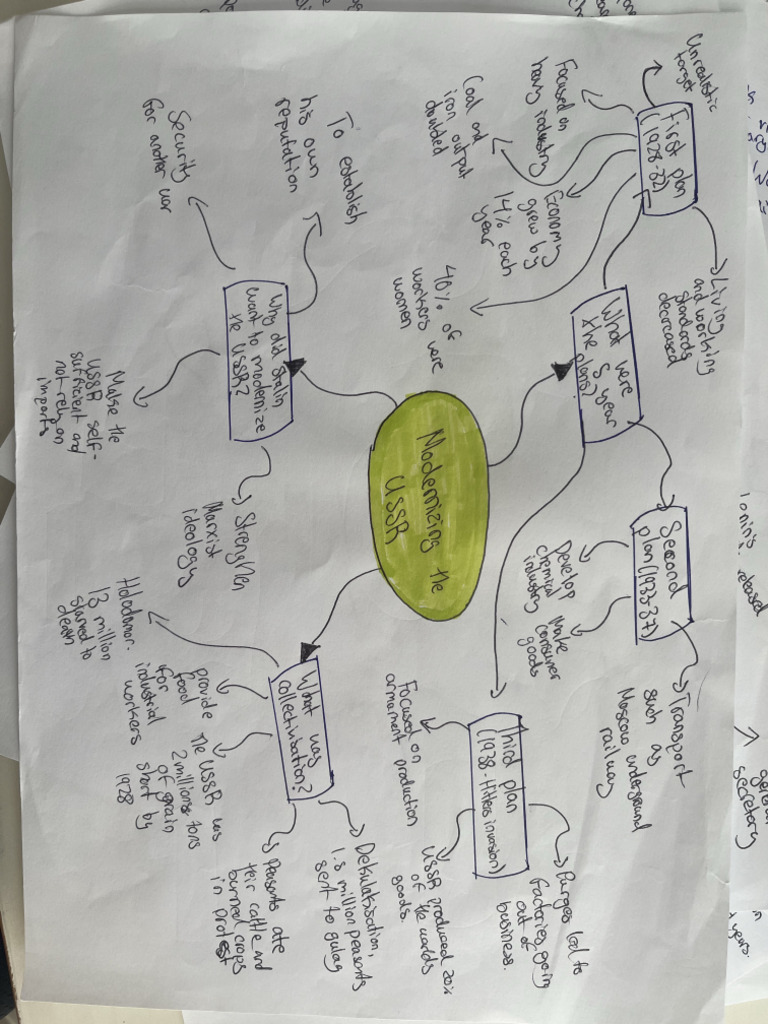 Modernizing the
USSR
What were
5 year
the plans?
First plan
(1928-32)
Unrealistic
target
Focused on
heavy industry
Coal and
iron output
doubled
Economy
grew by
14% each
year
40% of
workers were
women
Living
and working
standards
decreased
Second
plan (1933-37)
Develop
chemical
industry
Make
consumer
goods
Transport
such as
Moscow underground
railway
Third plan
(1938-Hitlers invasion)
Focused on
armament production
USSR produced 20%
of the worlds
goods.
Purges led to
factories going
out of
business.
Why did Stalin
want to modernize
the USSR?
To establish
his own
reputation
Security
for another war
Make the
USSR self-
sufficient and
not rely on
imports
Strengthen
Marxist
ideology
What was
collectivisation?
Holodomor.
13 million
starved to
death
provide
food
for
industrial
workers
The USSR was
2 millions tons
of grain
short by
1928
Peasants ate
teir cattle and
burned crops
in protest
Dekulakisation,
1.8 million peasants
sent to gulag
released
general
secretary
in
years.